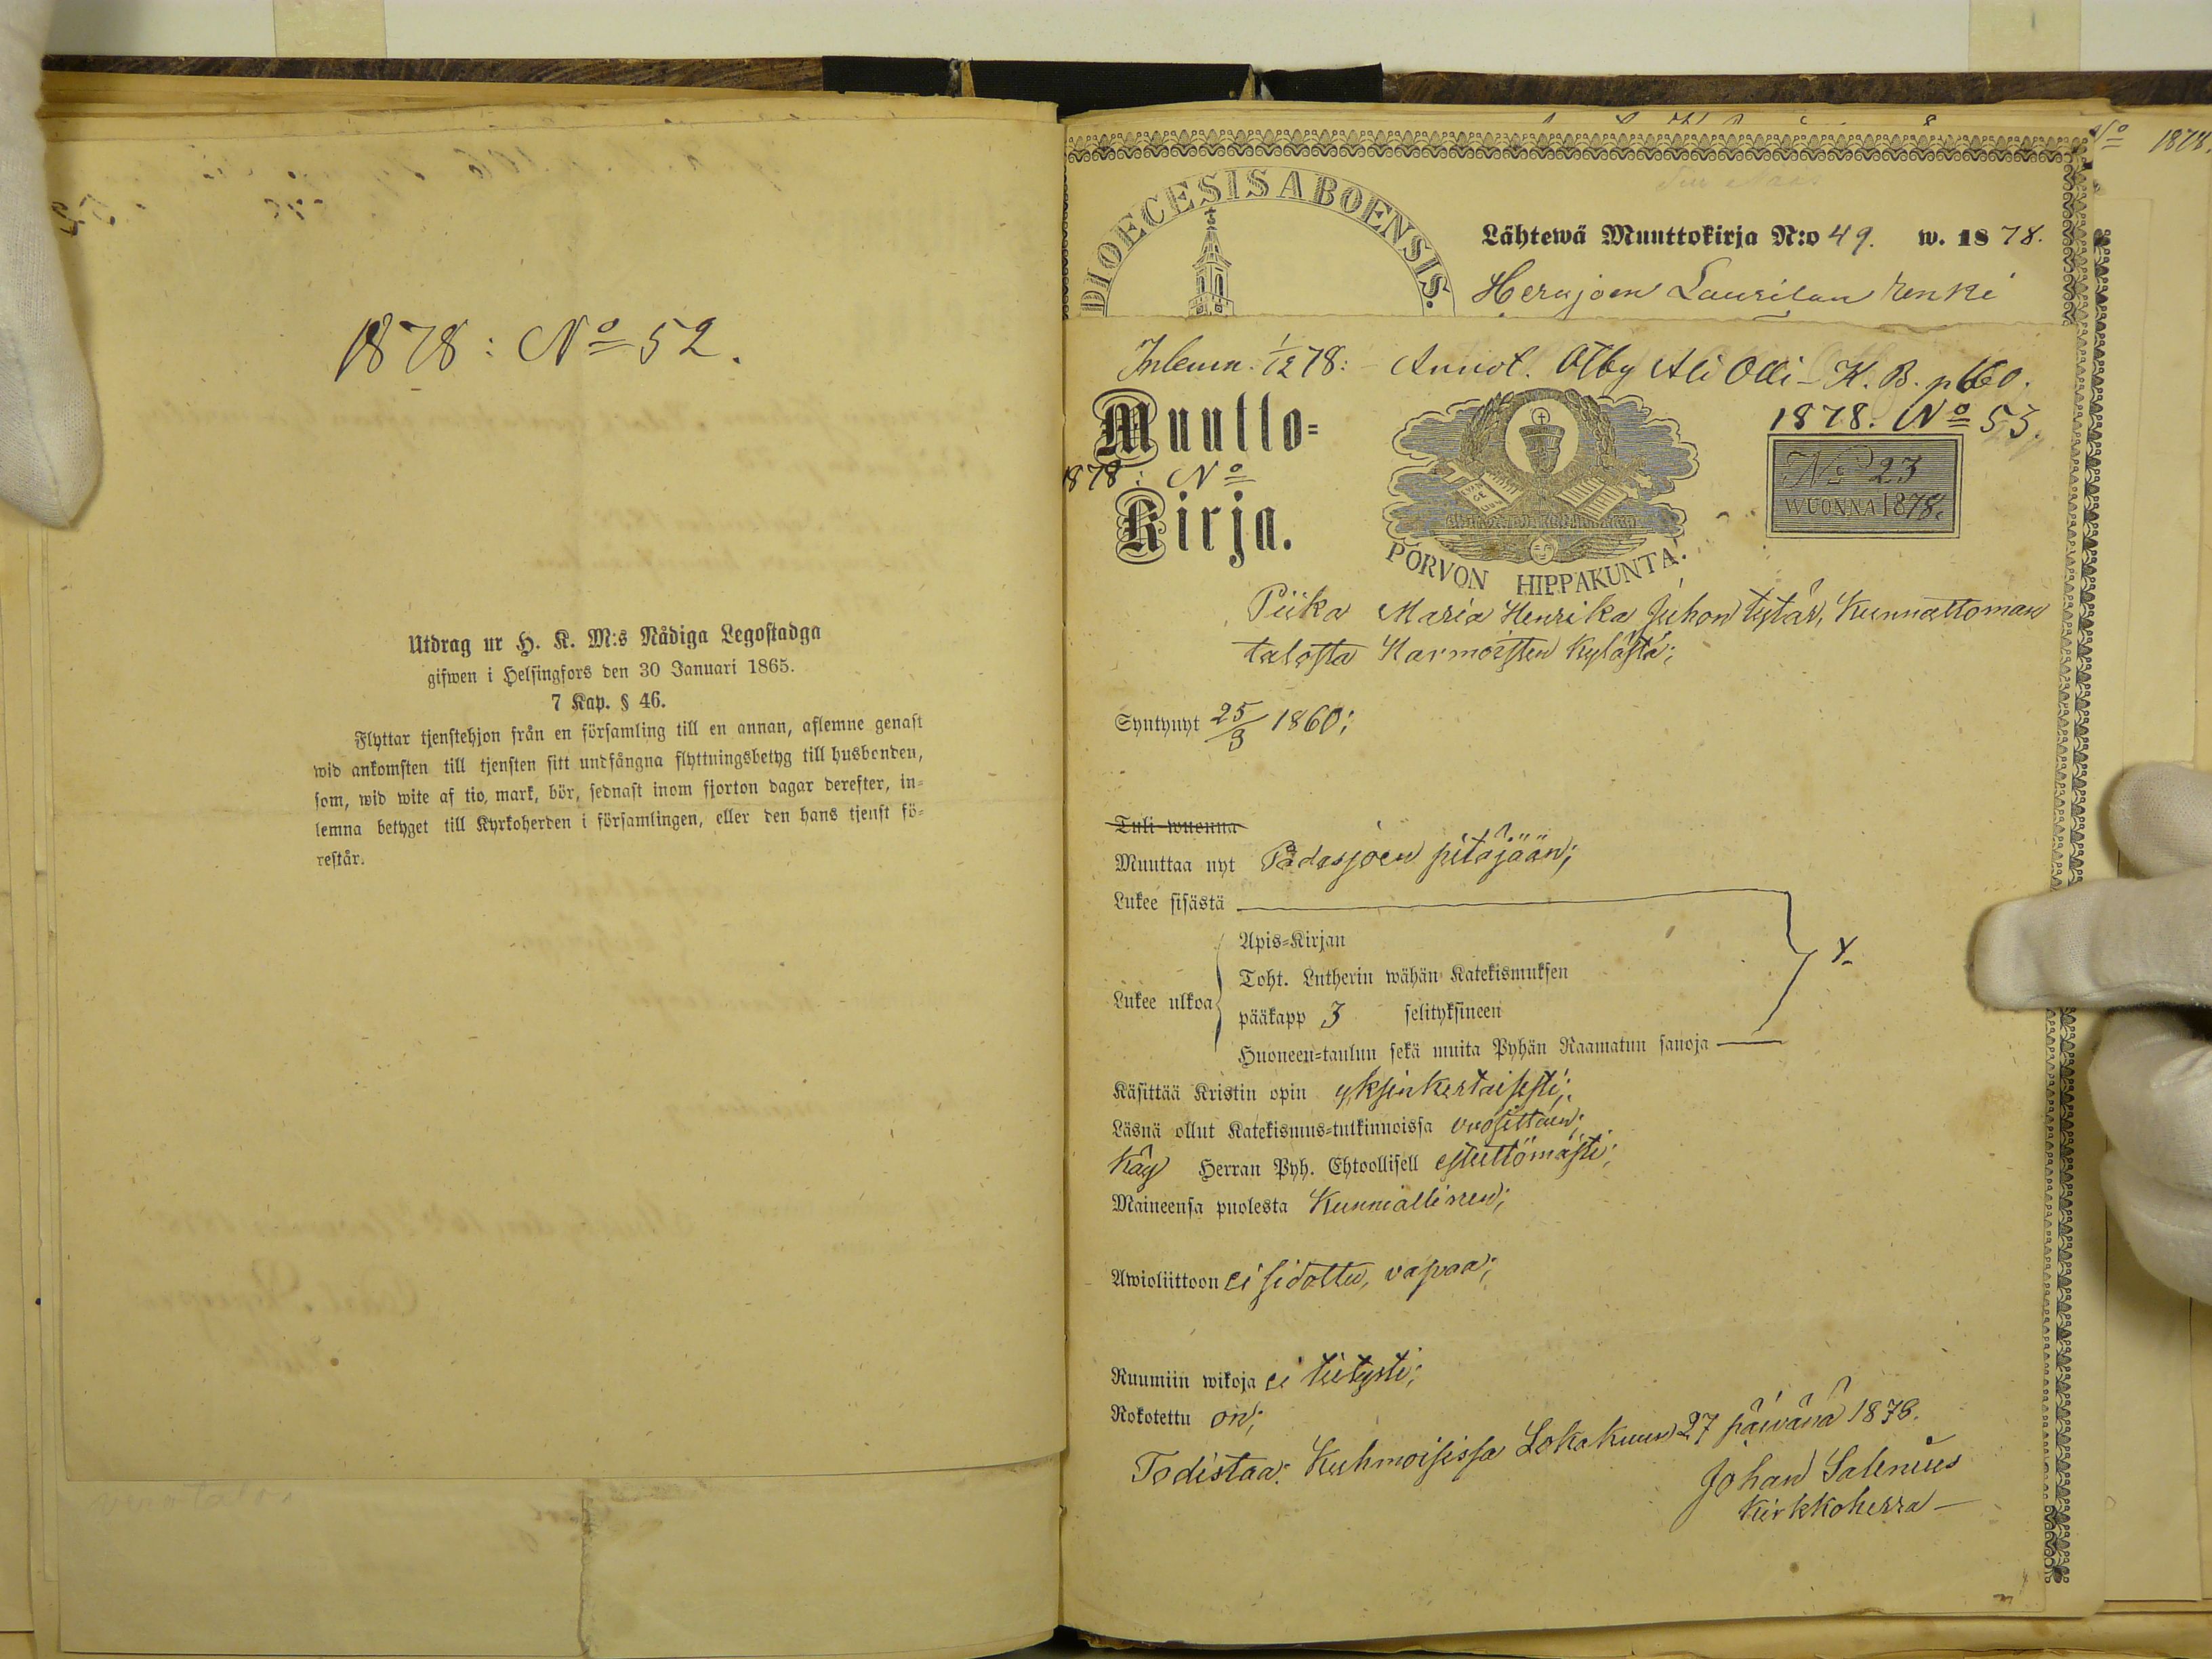 1878: No 52.
Utdrag ur H. K. M:s Nådiga Legostadga
gifwen i Helsingfors den 30 Januari 1865.
7 Kap. § 46.
Flyttar tjenstehjon från en församling till en annan, aflemne genast
wid ankomsten till tjensten sitt undfångna flyttningsbetyg till husbonden,
som, wid wite af tio, mark, bör, sednast inom fjorton dagar derefter, in-
lemna betyget till Kyrkoherden i församlingen, eller den hans tjenst fö-
restår.
No 1878.
DIOECESIS ABOENSIS.
Lähtewä Muuttokirja N:o 49. w. 1878.
Herajoen Laurilan renki
Inlemn. 1/12 78: - Annot. Otby Ali Olli - K. B. p 660.
1878. No 53.
Muutto-
1878: No
Kirja.
EVAN
GE
LIUM
PORVON HIPPAKUNTA.
No 23
WUONNA 1878.
Piika Maria Henrika Juhon tytär, Kunnattoman
talosta Harmoisten kylästä;
Syntynyt 25/3 1860;
Tuli wuonna
Muuttaa nyt Padasjoen pitäjään;
Lukee sisästä
Apis-Kirjan
Toht. Lutherin wähän Katekismuksen
Lukee ulkoa
pääkapp 3 selityksineen
Huoneen-taulun sekä muita Pyhän Raamatun sanoja
Käsittää Kristin opin yksinkertaisesti;
Läsnä ollut Katekismus-tutkinnoissa vuosittain;
Käy Herran Pyh. Ehtoollisell esteettömästi;
Maineensa puolesta Kunniallinen;
Awioliittoon ei sidottu, vapaa;
Ruumiin wikoja ei tietysti;
Rokotettu on;
Todistaa: Kuhmoisissa Lokakuun 27 päivänä 1878.
Johan Salenius
Kirkkoherra